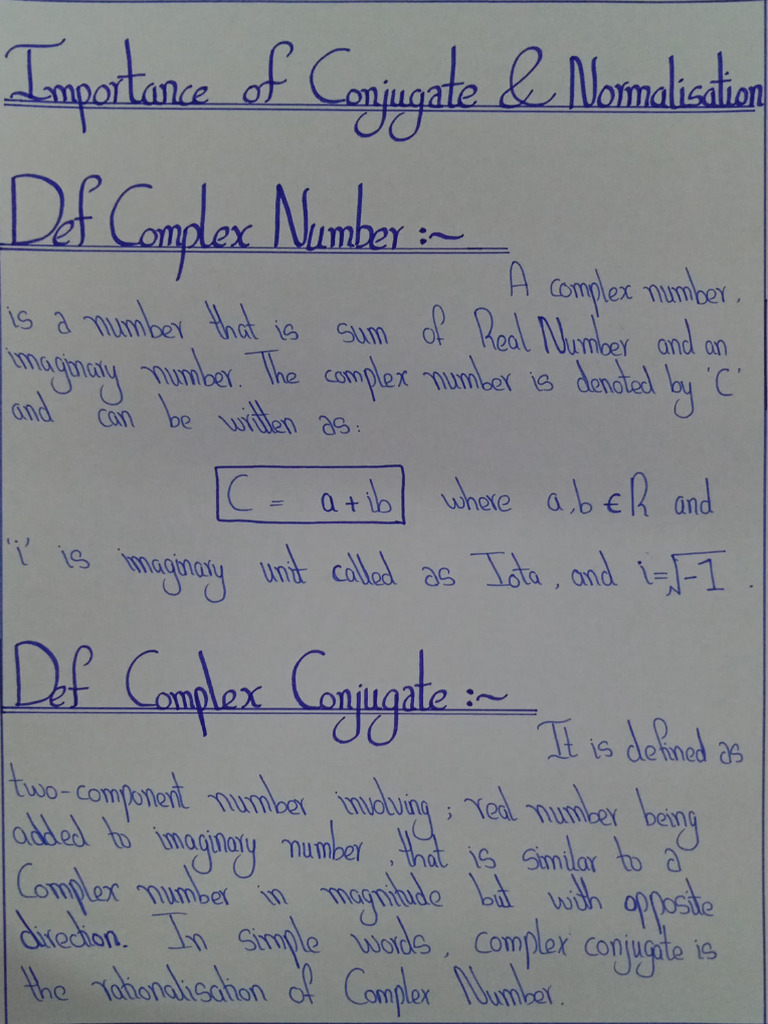 Importance of Conjugate & Normalisation
Def Complex Number :~
A complex number.
is a number that is sum of Real Number and an
imaginary number. The complex number is denoted by 'C'
and can be written as:
C = a + ib where a,b ∈ R and
'i' is imaginary unit called as Iota, and i=√-1 .
Def Complex Conjugate :~
It is defined as
two-component number involving; real number being
added to imaginary number, that is similar to a
Complex number in magnitude but with opposite
direction. In simple words, complex conjugate is
the rationalisation of Complex Number.